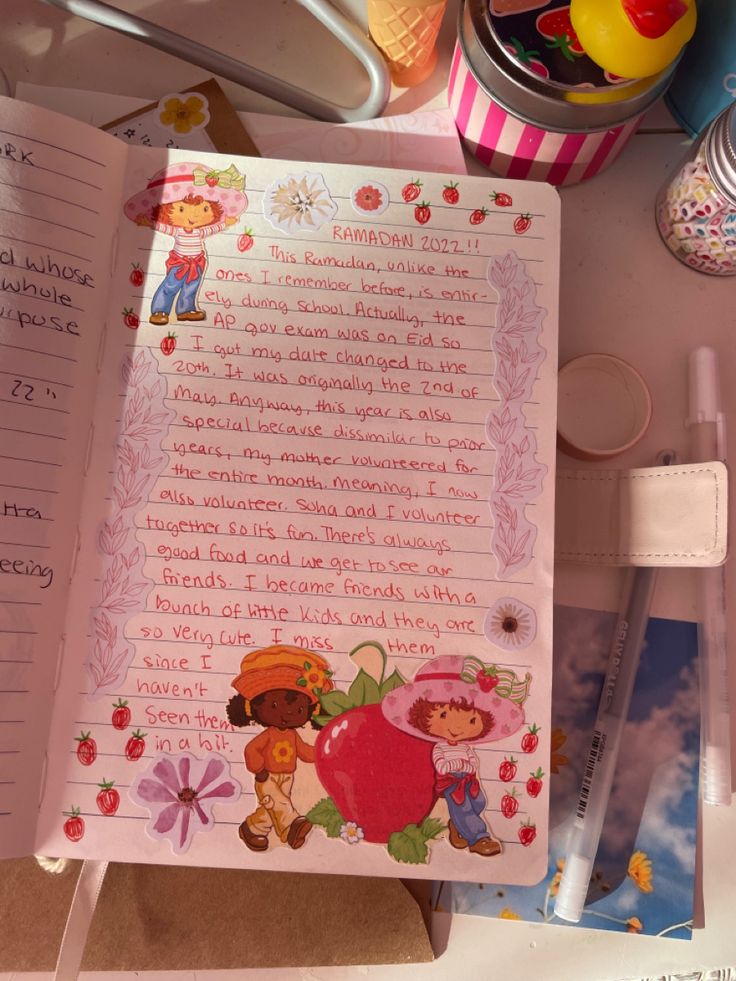 RK
d whose
whole
rpose
22"
Ha
eeing
RAMADAN 2022!!
This Ramadan, unlike the
ones I remember before, is entir-
ely during school. Actually, the
AP gov exam was on Eid so
I got my date changed to the
20th. It was originally the 2nd of
May. Anyway, this year is also
special because dissimilar to prior
years, my mother volunteered for
the entire month. Meaning, I now
also volunteer. Soha and I volunteer
together so it's fun. There's always
good food and we get to see our
friends. I became friends with a
bunch of little kids and they are
so very cute. I miss them
since I
haven't
seen them
in a bit.
GELLY ROLL